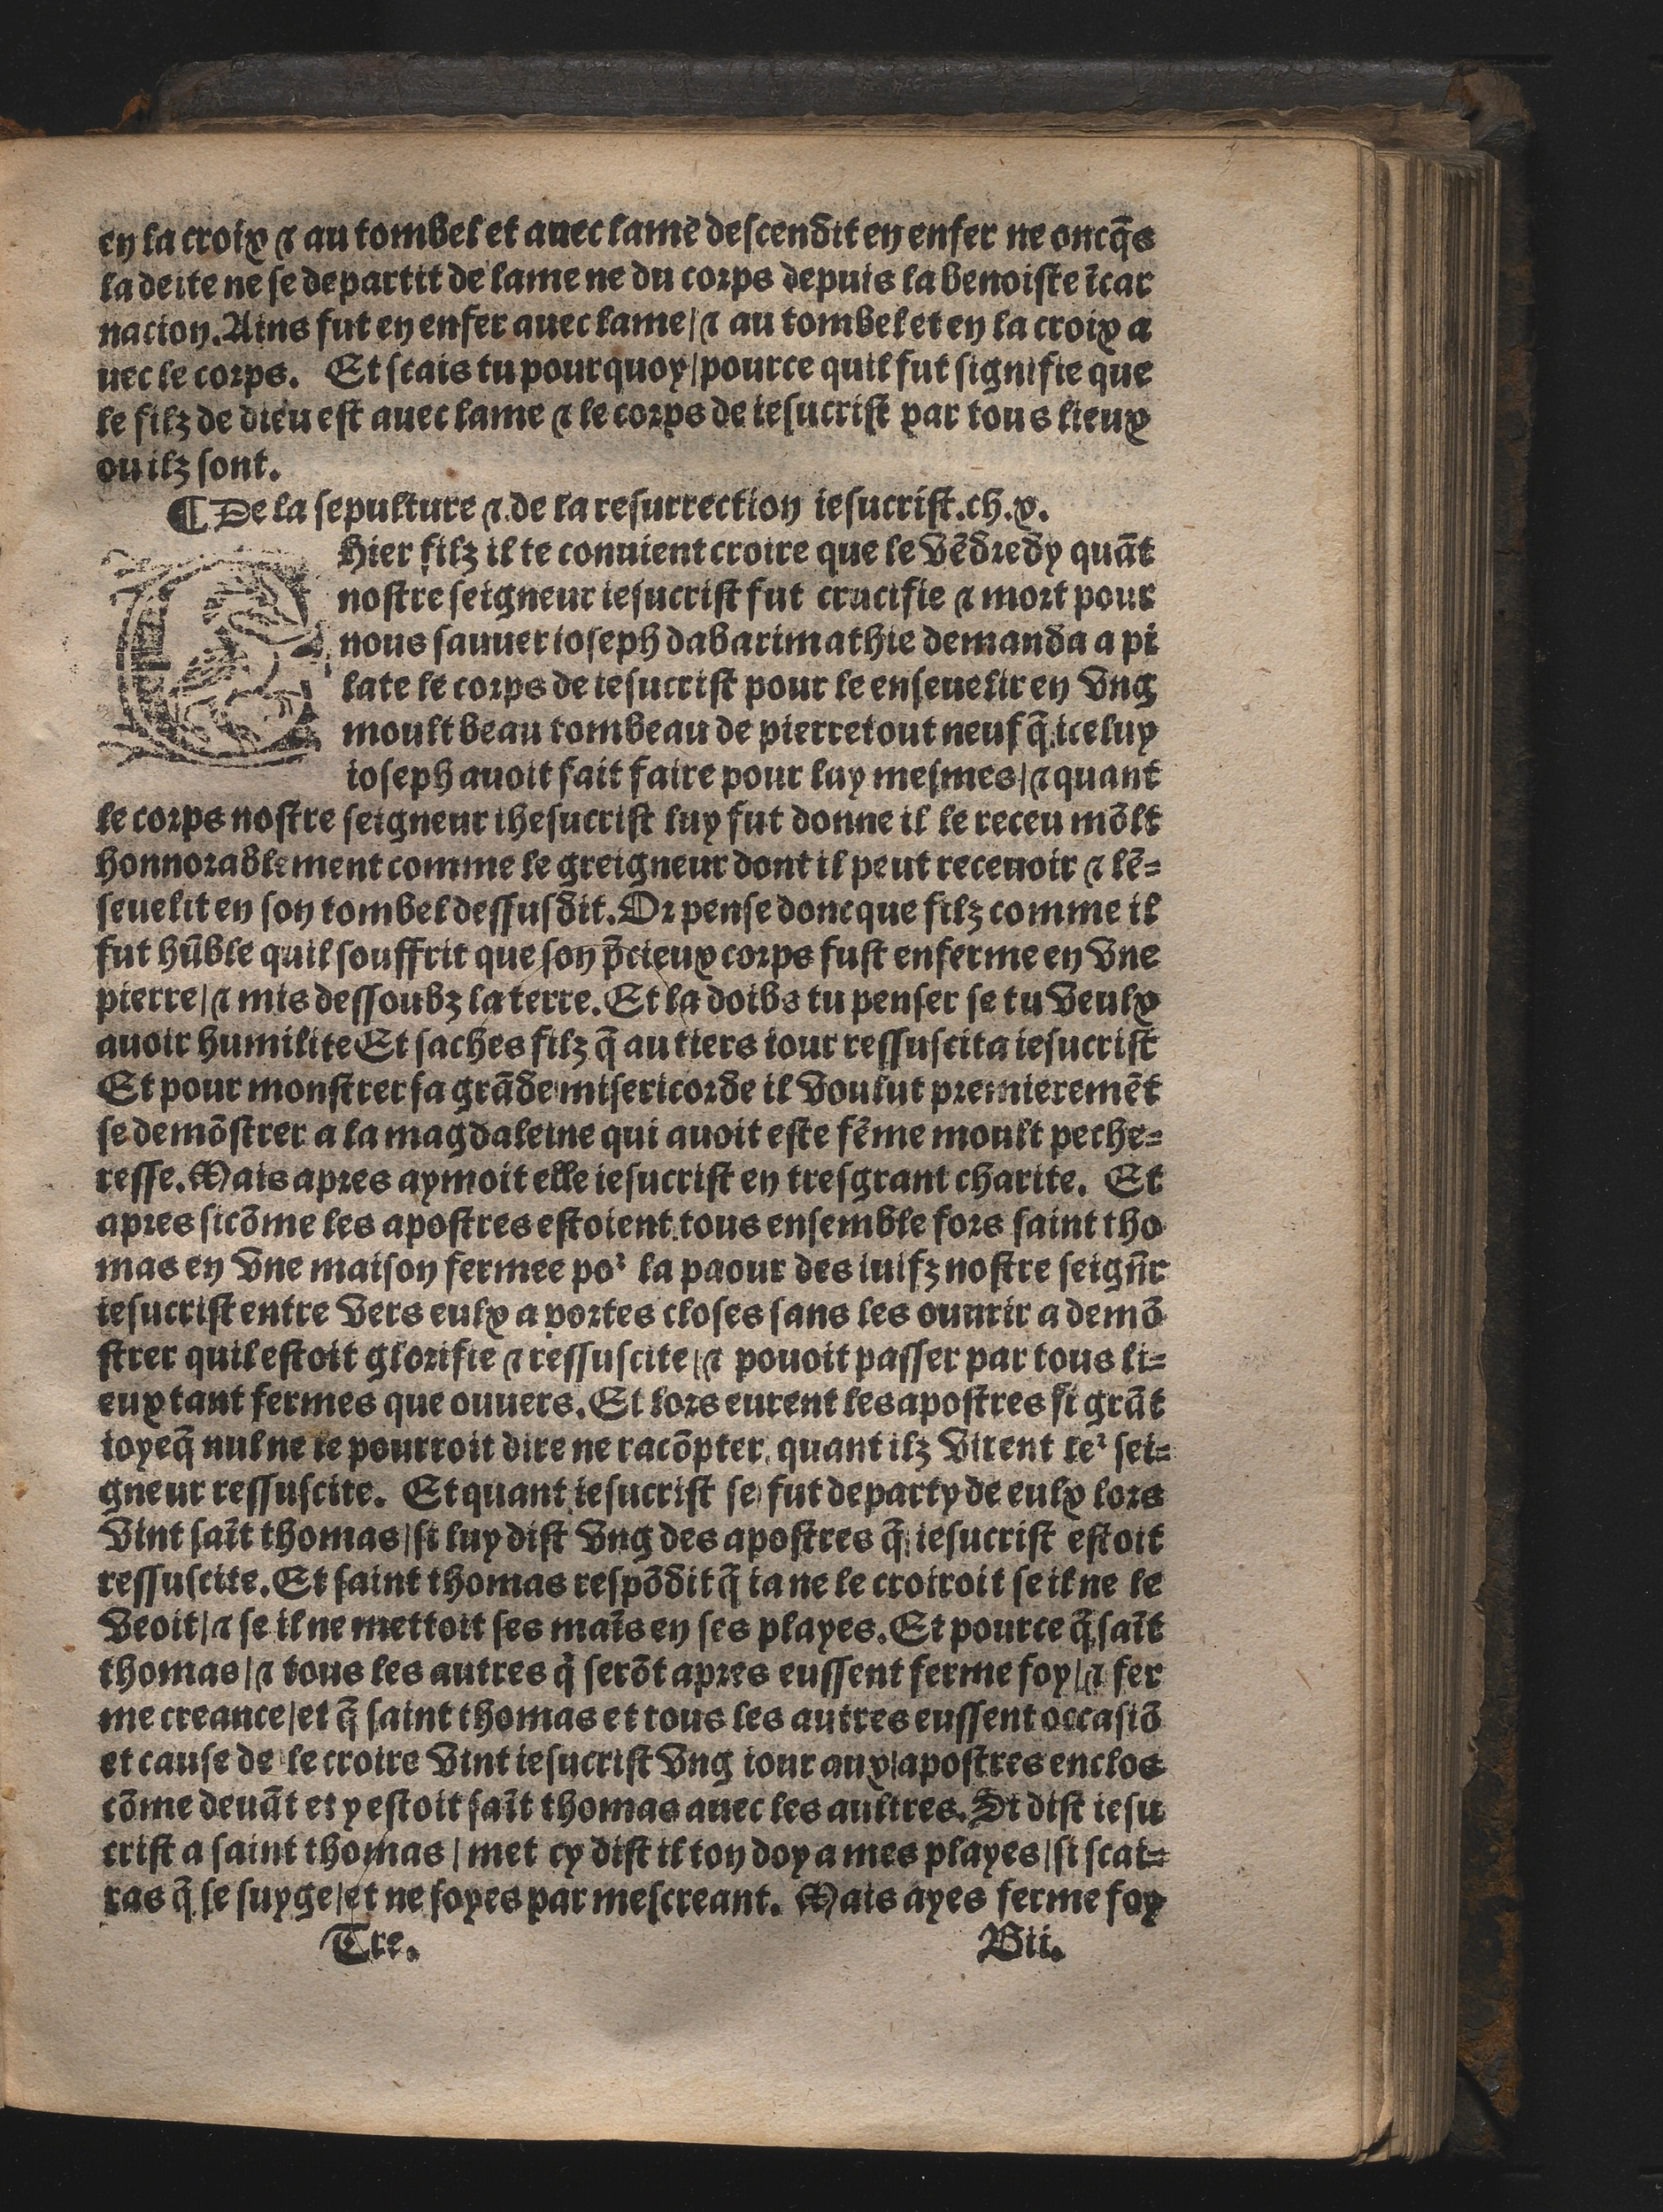 en la croix ⁊ au tombel et auec lame descendit en enfer ne oncq̄s
la deite ne se departit de lame ne du corps depuis la benoiste īcar
nacion. Ains fut en enfer auec lame/⁊ au tombel et en la croix a
uec le corps. Et scais tu pourquoy/pource quil fut signifie que
le filz de dieu est auec lame ⁊ le corps de iesucrist par tous lieux
ou ilz sont.
¶ De la sepulture ⁊ de la resurrection iesucrist. ch. x.
CHier filz il te conuient croire que le vēdredy quāt
nostre seigneur iesucrist fut crucifie ⁊ mort pour
nous sauuer ioseph dabarimathie demanda a pi
late le corps de iesucrist pour le enseuelir en vng
moult beau tombeau de pierre tout neuf q̄ iceluy
ioseph auoit fait faire pour luy mesmes/⁊ quant
le corps nostre seigneur ihesucrist luy fut donne il le receu mōlt
honnorablement comme le greigneur dont il peut receuoir ⁊ lē=
seuelit en son tombel dessusdit. Or pense doncque filz comme il
fut hūble quil souffrit que son p̄cieux corps fust enferme en vne
pierre/⁊ mis dessoubz la terre. Et la doibs tu penser se tu veulx
auoir humilite Et saches filz q̄ au tiers iour ressuscita iesucrist
Et pour monstrer sa grāde misericorde il voulut premieremēt
se demōstrer a la magdaleine qui auoit este fēme moult peche=
resse. Mais apres aymoit elle iesucrist en tresgrant charite. Et
apres sicōme les apostres estoient tous ensemble fors saint tho
mas en vne maison fermee poꝛ la paour des iuifz nostre seigñr
iesucrist entre vers eulx a portes closes sans les ouurir a demō
strer quil estoit glorifie ⁊ ressuscite/⁊ pouoit passer par tous li=
eux tant fermes que ouuers. Et lors eurent les apostres si grāt
ioye q̄ nul ne le pourroit dire ne racōpter, quant ilz virent leꝛ sei=
gneur ressuscite. Et quant iesucrist se fut departy de eulx lors
vint saīt thomas/si luy dist vng des apostres q̄ iesucrist estoit
ressuscite. Et saint thomas respōdit q̄ ia ne le croiroit se il ne le
veoit/⁊ se il ne mettoit ses maīs en ses playes. Et pource q̄ saīt
thomas/⁊ tous les autres q̇ serōt apres eussent ferme foy/⁊ fer
me creance/et q̄ saint thomas et tous les autres eussent occasiō
et cause de le croire vint iesucrist vng iour aux apostres enclos
cōme deuāt et y estoit saīt thomas auec les aultres. Si dist iesu
crist a saint thomas/met cy dist il ton doy a mes playes/si scai=
ras q̄ se suyge/et ne soyes par mescreant. Mais ayes ferme foy
Tre. Bii.